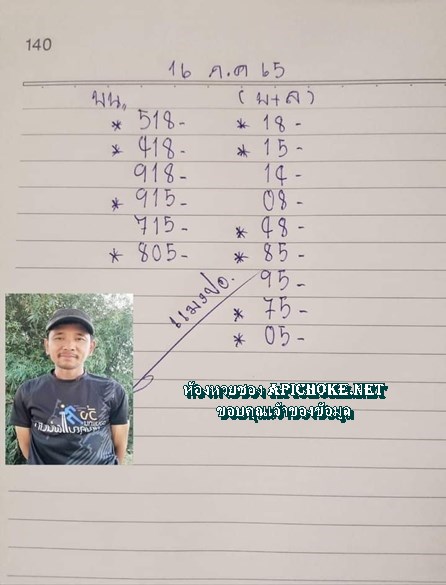 140
16 ต.ค 65
บน. (บ+ล)
* 518- * 18-
* 418- * 15-
918- 14-
* 915- 08-
715- * 48-
* 805- * 85-
95-
* 75-
* 05-
แมงปอ.
ห้องหวยซอง APICHOKE.NET
ขอบคุณเจ้าของข้อมูล